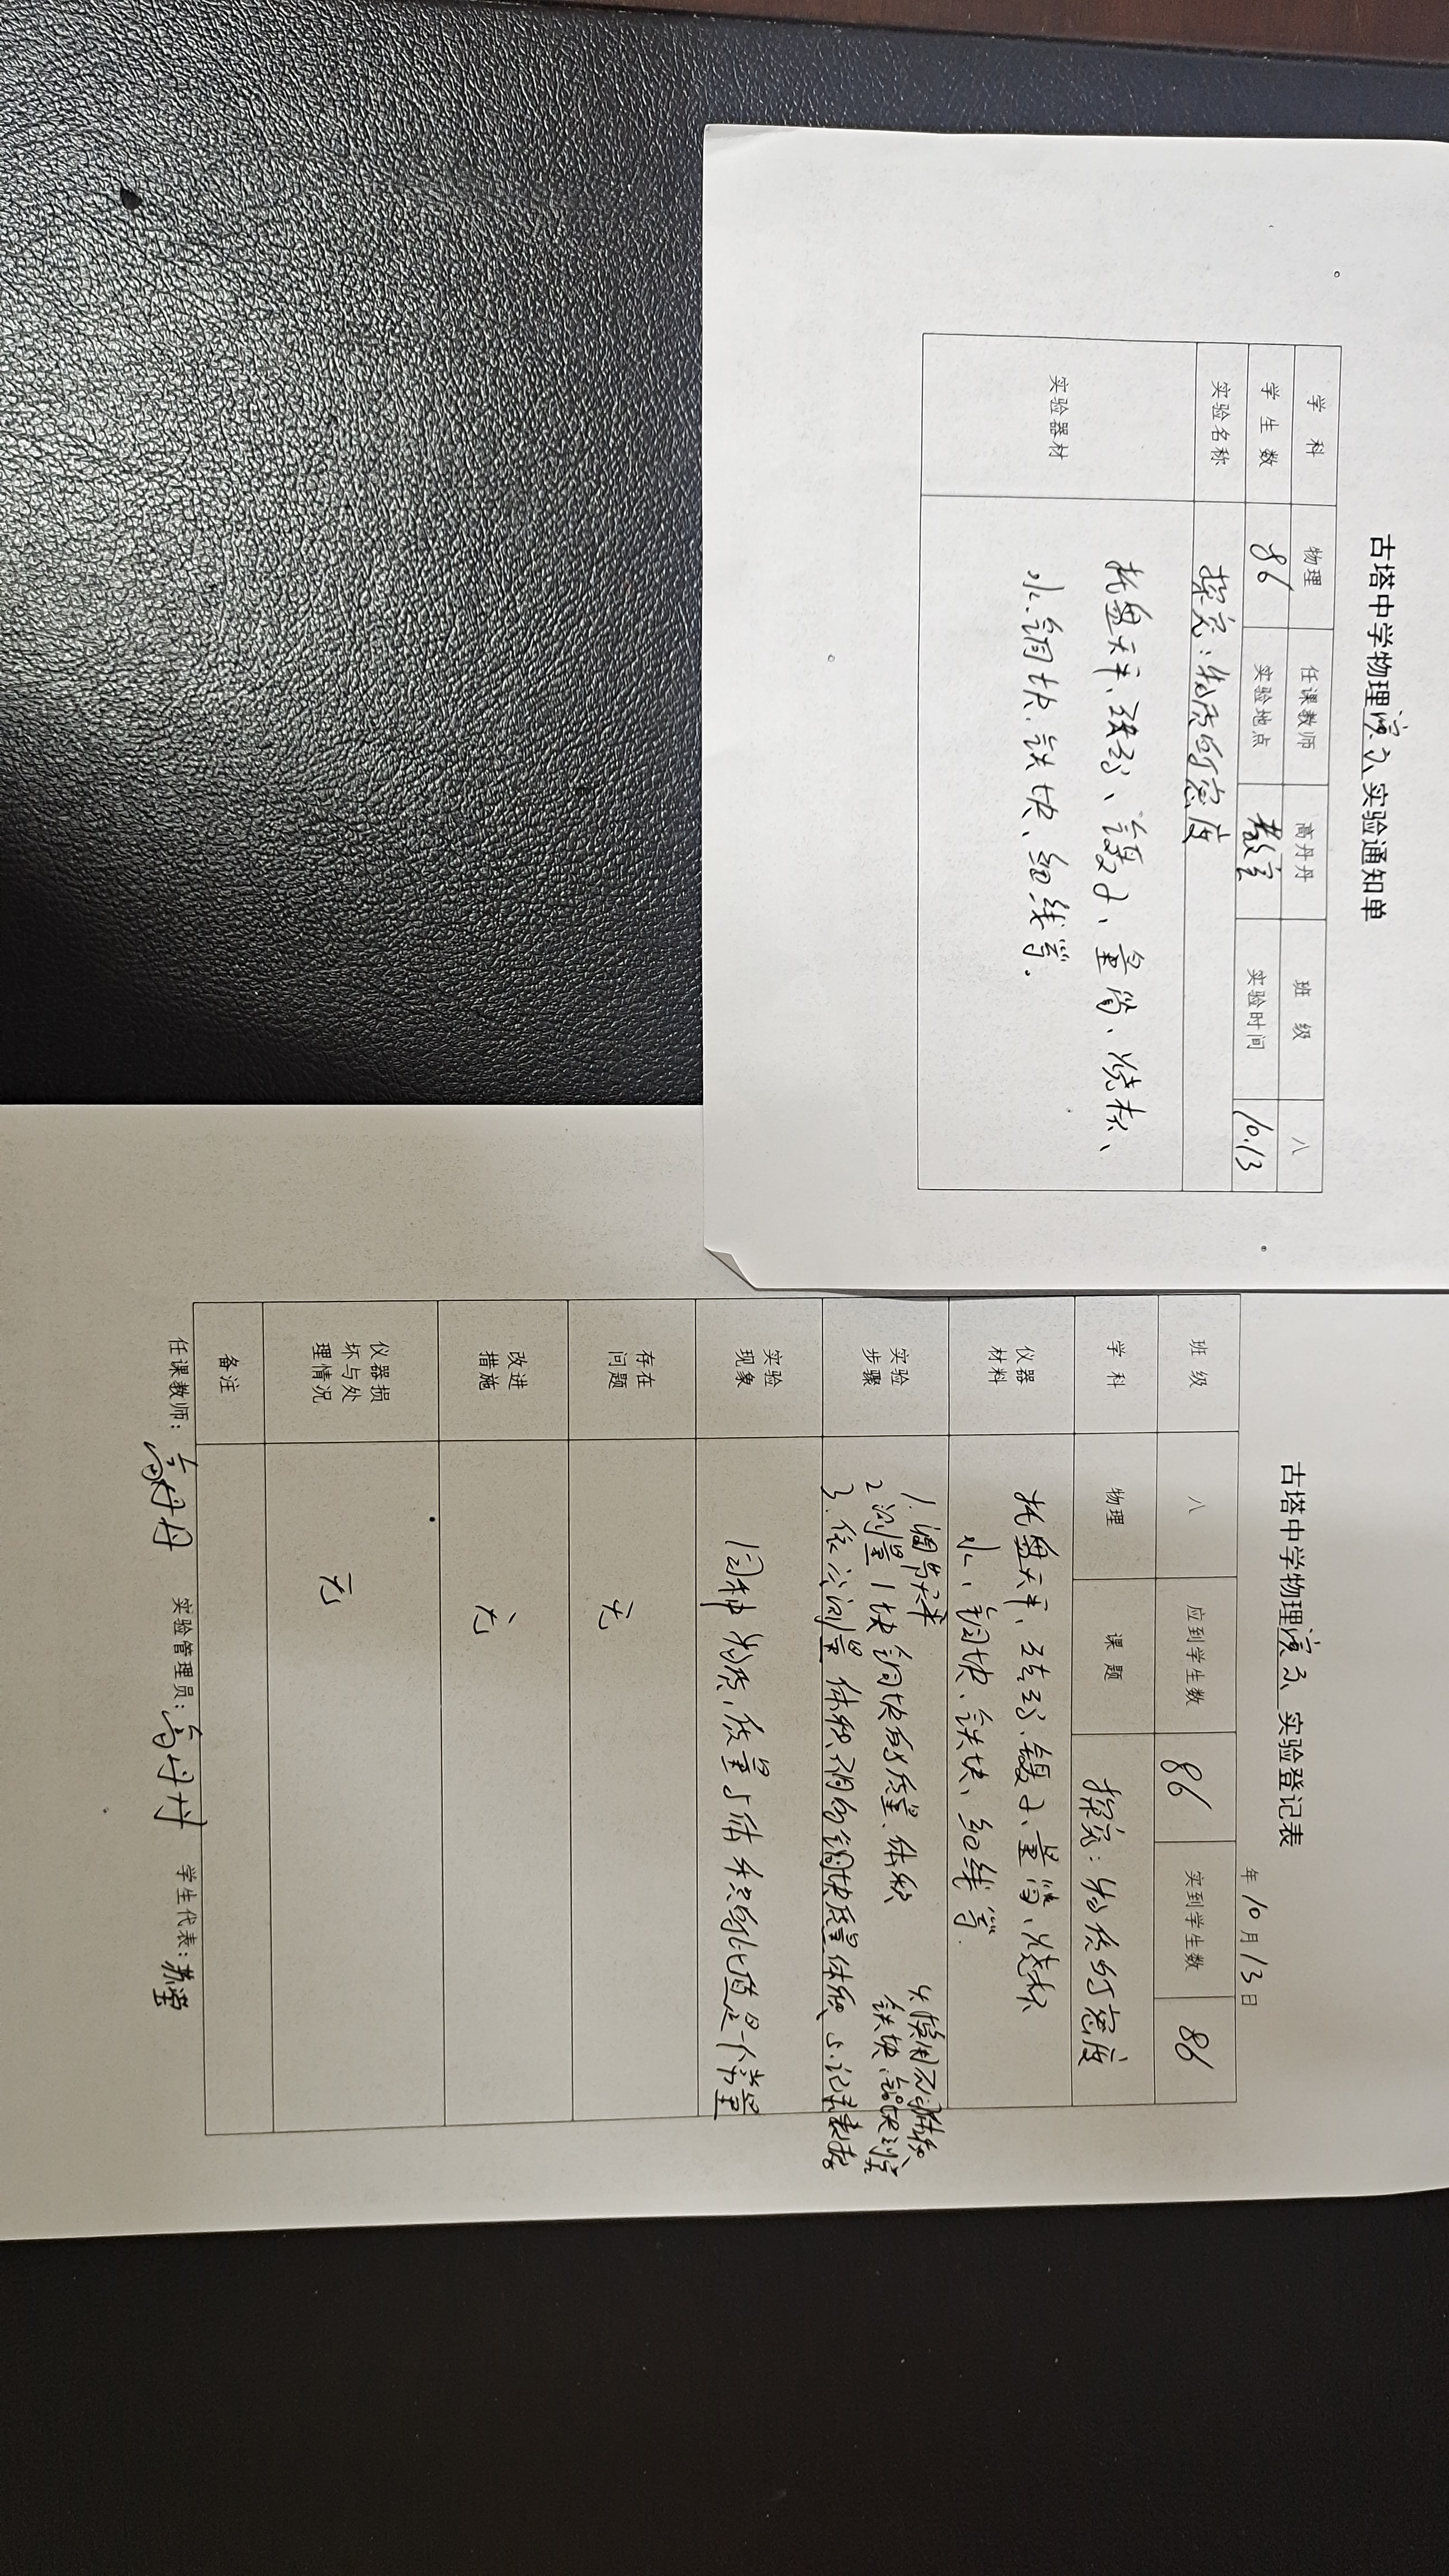 古塔中学物理演示实验通知单
学 科 物理 任课教师 高丹丹 班 级 八
学 生 数 86 实验地点 教室 实验时间 10.13
实验名称 探究:物质的密度
实验器材
托盘天平、砝码、镊子、量筒、烧杯、
水、铜块、铁块、细线等.
古塔中学物理演示实验登记表
年10月13日
班 级 八 应到学生数 86 实到学生数 86
学 科 物理 课 题 探究:物质的密度
仪器
材料
托盘天平、砝码、镊子、量筒、烧杯
水、铜块、铁块、细线等.
实验
步骤
1.调节天平
2测量1块铜块的质量、体积
3.依次测量体积不同的铜块质量、体积
4.换用不同体积
铁块、铝块测量
5.记录表格
实验
现象
同种物质,质量与体积的比值是一个常量
存在
问题
无
改进
措施
无
仪器损
坏与处
理情况
无
备注
任课教师:高丹丹 实验管理员:高丹丹 学生代表:苏莹